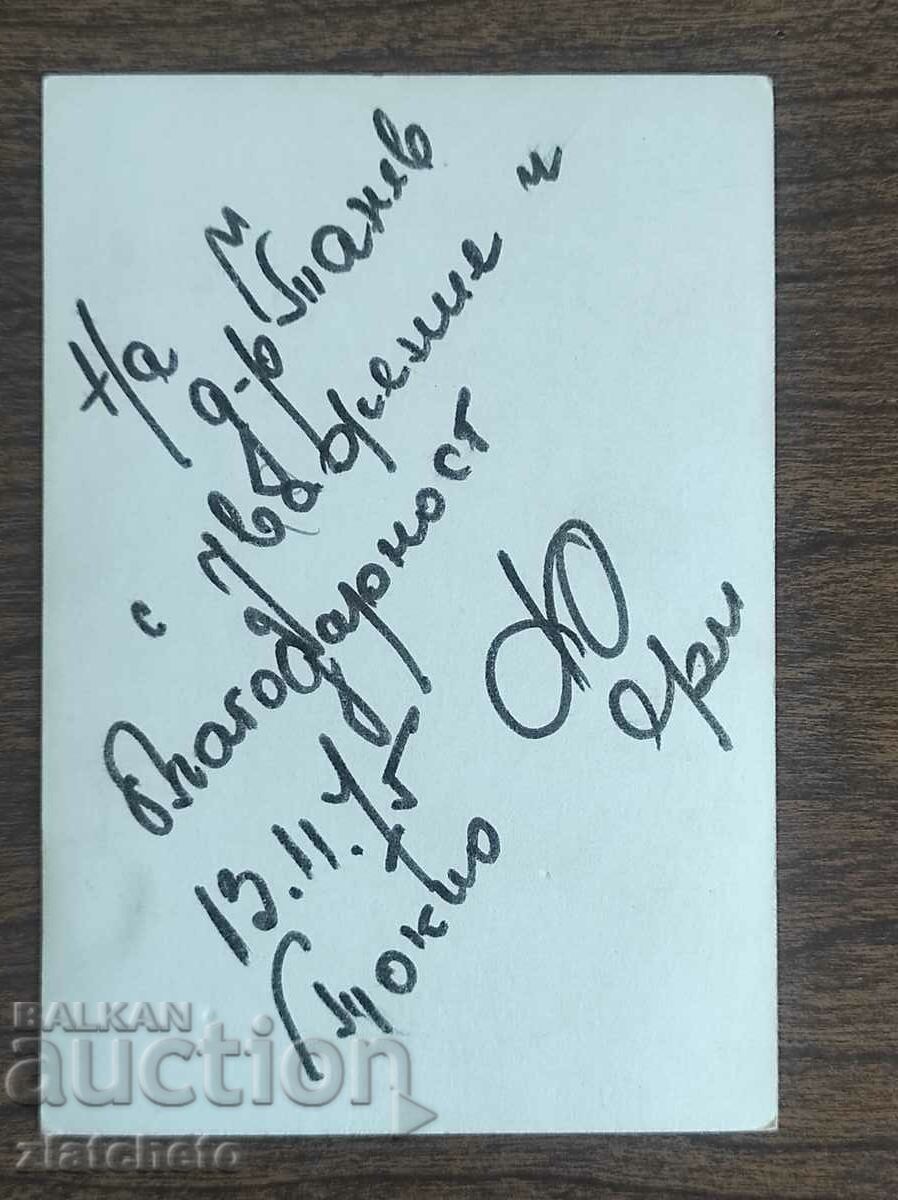 На д-р Танев
с уважение и
благодарност
13.11.75
Токио
BALKAN
auction
zlatcheto